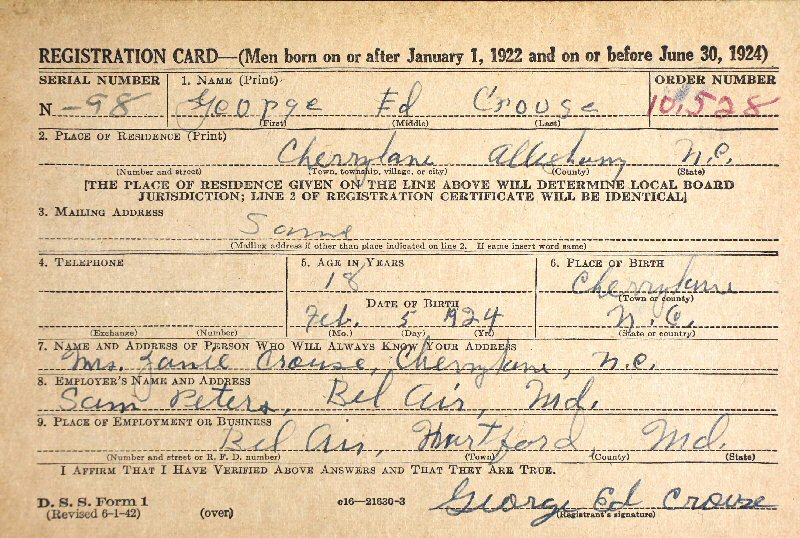 REGISTRATION CARD—(Men born on or after January 1, 1922 and on or before June 30, 1924)
SERIAL NUMBER 1. NAME (Print) ORDER NUMBER
N -98 George Ed Crouse 10,528
(First) (Middle) (Last)
2. PLACE OF RESIDENCE (Print)
Cherrylane Alleghany N.C.
(Number and street) (Town, township, village, or city) (County) (State)
[THE PLACE OF RESIDENCE GIVEN ON THE LINE ABOVE WILL DETERMINE LOCAL BOARD
JURISDICTION; LINE 2 OF REGISTRATION CERTIFICATE WILL BE IDENTICAL]
3. MAILING ADDRESS
Same
(Mailing address if other than place indicated on line 2. If same insert word same)
4. TELEPHONE 5. AGE IN YEARS 6. PLACE OF BIRTH
18 Cherrylane
(Town or county)
DATE OF BIRTH
Feb. 5 1924 N.C.
(Exchange) (Number) (Mo.) (Day) (Yr.) (State or country)
7. NAME AND ADDRESS OF PERSON WHO WILL ALWAYS KNOW YOUR ADDRESS
Mrs. Janie Crouse, Cherrylane, N.C.
8. EMPLOYER'S NAME AND ADDRESS
Sam Peters, Bel Air, Md.
9. PLACE OF EMPLOYMENT OR BUSINESS
Bel Air, Hartford Md.
(Number and street or R. F. D. number) (Town) (County) (State)
I AFFIRM THAT I HAVE VERIFIED ABOVE ANSWERS AND THAT THEY ARE TRUE.
D. S. S. Form 1 c16—21630-3 George Ed Crouse
(Revised 6-1-42) (over) (Registrant's signature)